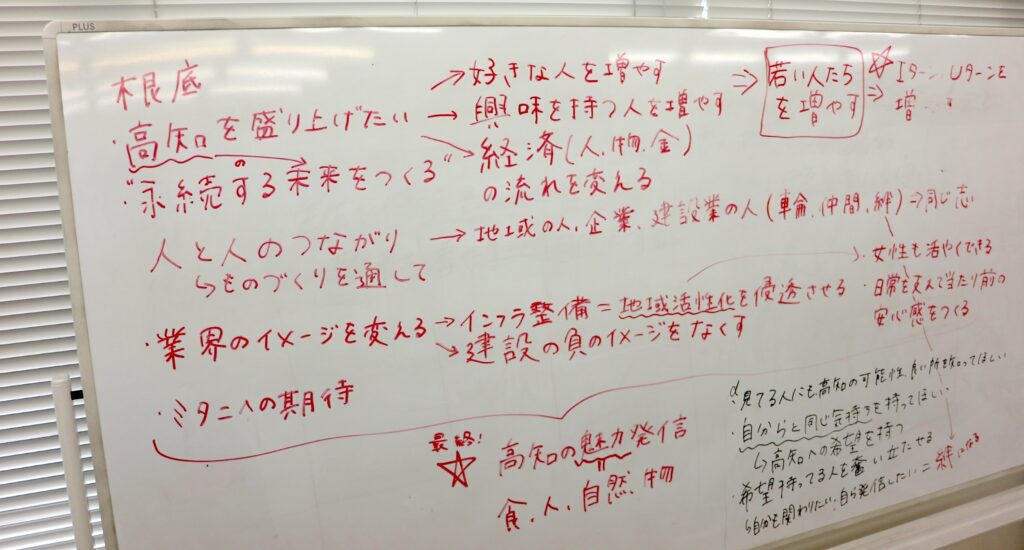 PLUS
根底
・高知を盛り上げたい
→好きな人を増やす
→興味を持つ人を増やす
→経済(人、物、金)
の流れを変える
⇒ 若い人たち
を増やす
⇒ ☆Iターン、Uターンを
増 す
の
・"永続する未来をつくる"
人と人のつながり → 地域の人、企業、建設業の人(輪、仲間、絆) ⇒ 同じ志
↳ものづくりを通して
・女性も活やくできる
・日常を支えて当たり前の
安心感をつくる
・業界のイメージを変える → インフラ整備=地域活性化を優透させる
↘建設の負のイメージをなくす
・ミタニへの期待
最終!
☆ 高知の魅力発信
=
食、人、自然、物
見てる人にも高知の可能性、良い所を知ってほしい
・自分からと同じ気持ちを持ってほしい
↳高知への希望を持つ
・希望持ってる人を奮い立たせる
↳自分も関わりたい、自ら発信したい=絆になる